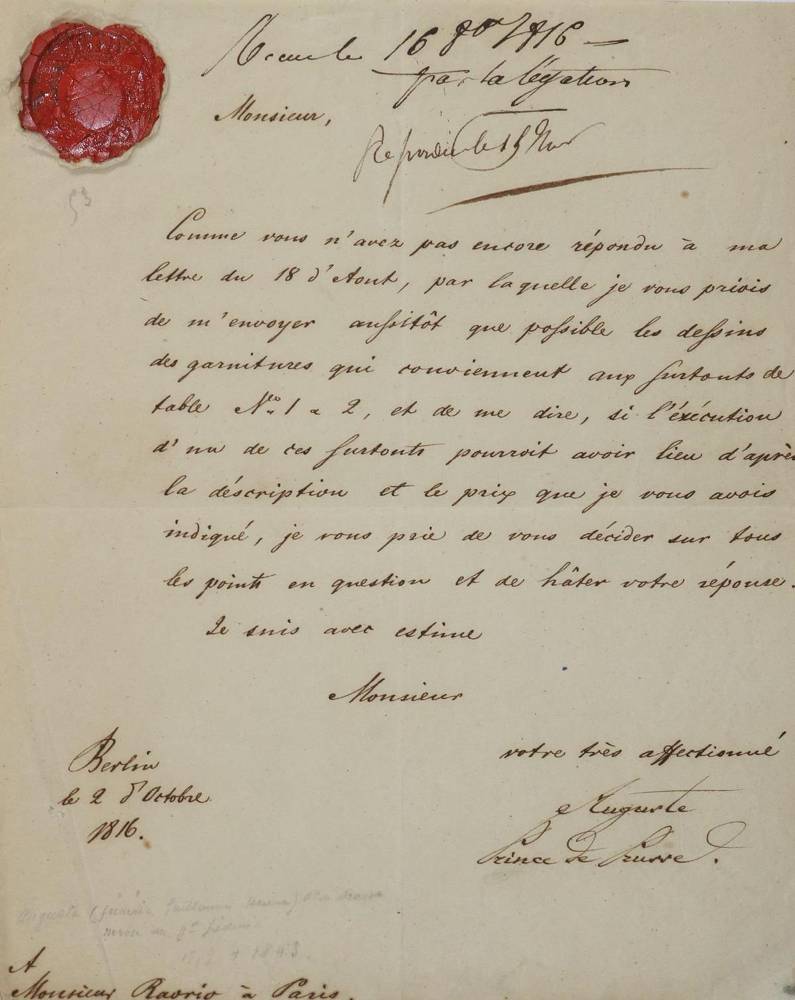 Recu le 16 8bre 1816 —
par la légation
Monsieur,
Repondu le 15 Nov
53
Comme vous n'avez pas encore répondu à ma
lettre du 18 d'Aout, par laquelle je vous priois
de m'envoyer aussitôt que possible les dessins
des garnitures qui conviennent aux surtouts de
table Nro 1 & 2, et de me dire, si l'éxécution
d'un de ces surtouts pourroit avoir lieu d'après
la déscription et le prix que je vous avois
indiqué, je vous prie de vous décider sur tous
les points en question et de hâter votre réponse.
Je suis avec estime
Monsieur
votre très affectionné
Auguste
Prince de Prusse.
Berlin
le 2 d'Octobre
1816.
Auguste (
1843
A
Monsieur Ravrio à Paris.